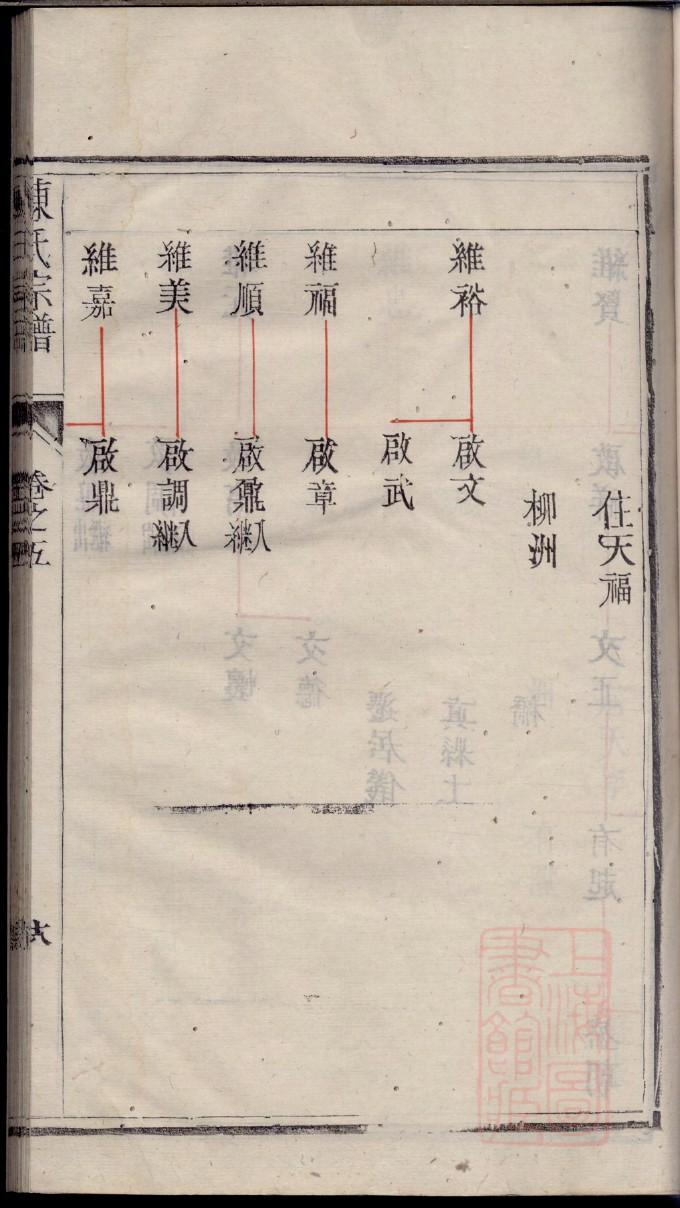 住天福
柳洲
維裕
啟文
啟武
維福
啟章
維順
啟鼐入繼
維美
啟調入繼
維嘉
啟鼎
陳氏宗譜
卷之五
上海圖書館藏